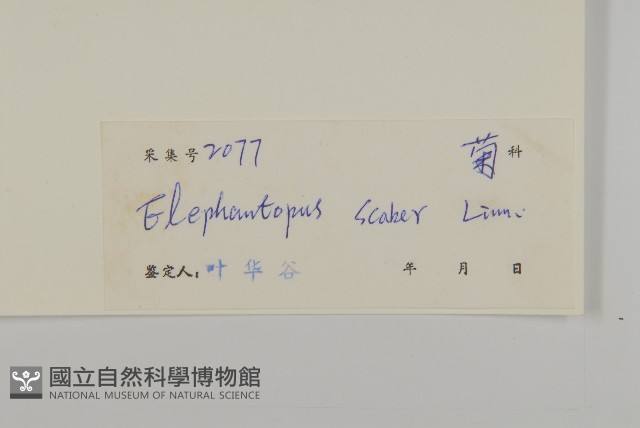 采集号 2077 菊 科
Elephantopus scaber Linn.
鉴定人：叶华谷 年 月 日
國立自然科學博物館
NATIONAL MUSEUM OF NATURAL SCIENCE